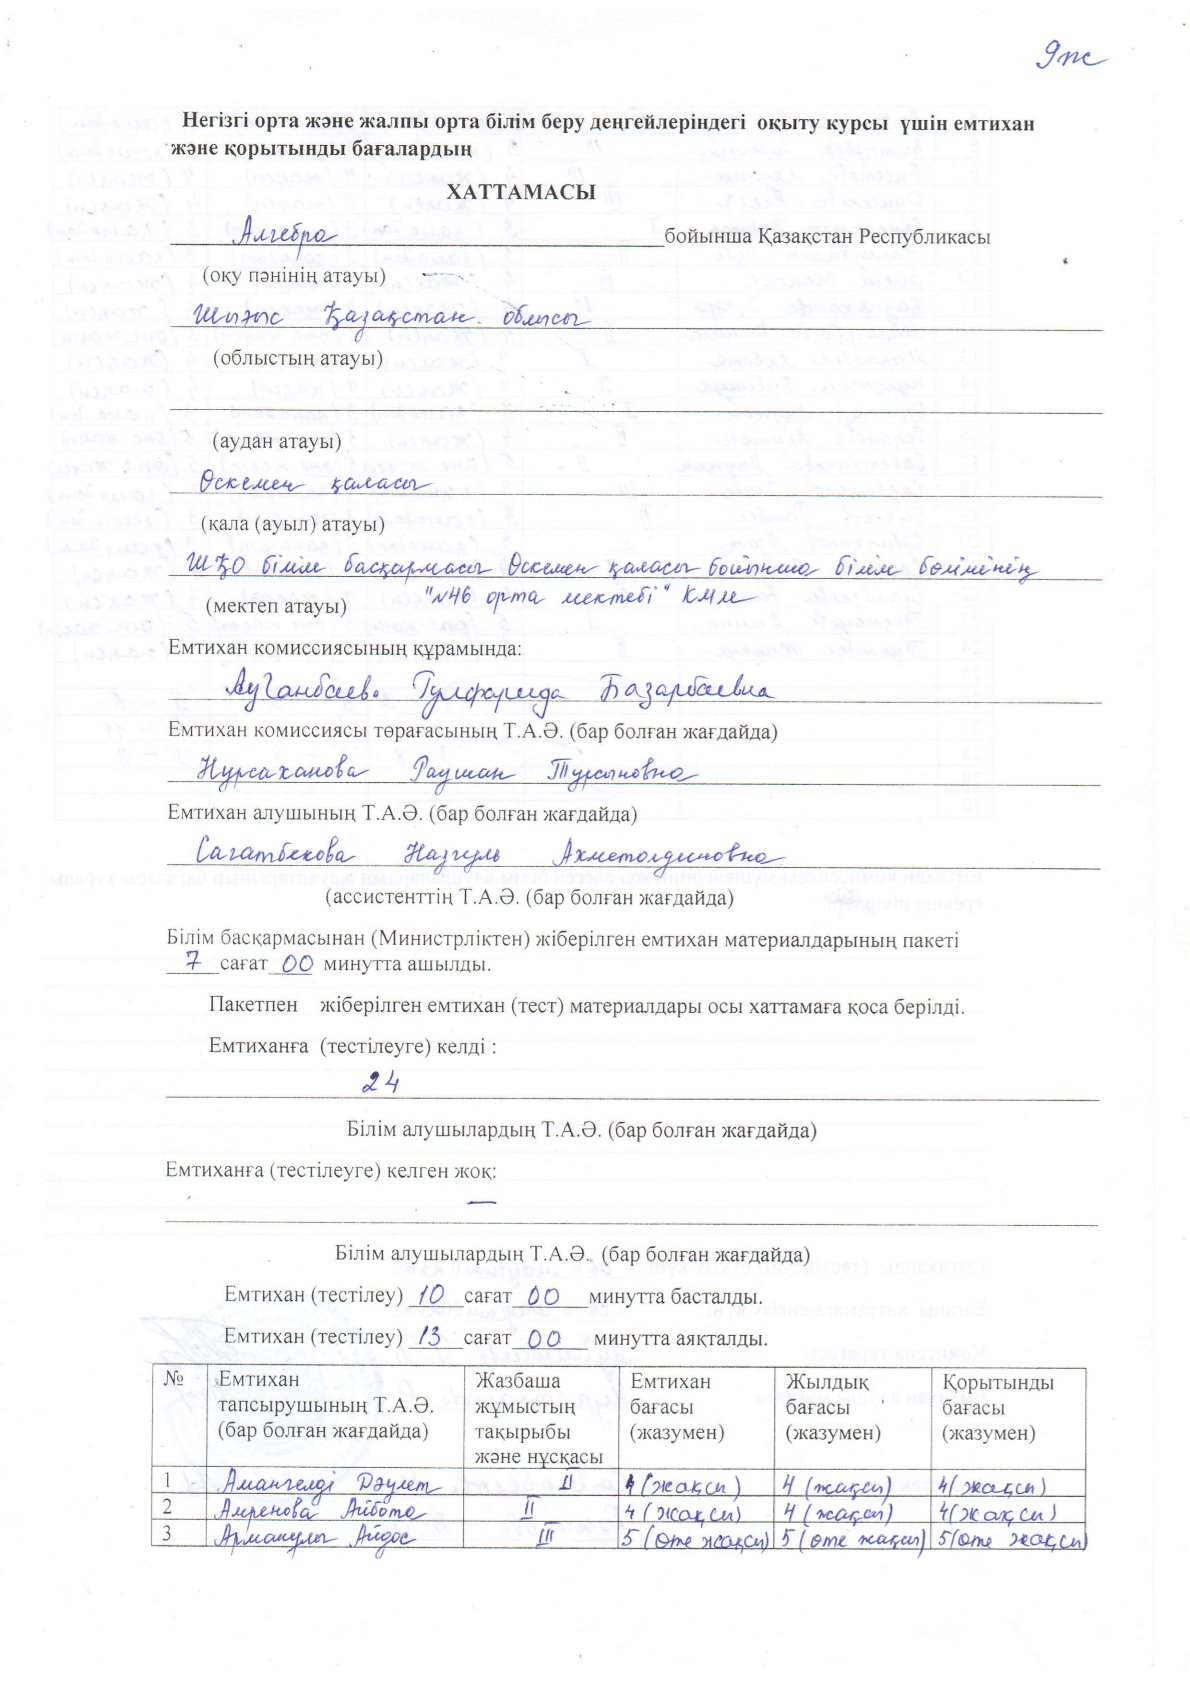 9 "Ж"
Негізгі орта және жалпы орта білім беру деңгейлеріндегі оқыту курсы үшін емтихан
және қорытынды бағалардың
ХАТТАМАСЫ
Алгебра бойынша Қазақстан Республикасы
(оқу пәнінің атауы)
Шығыс Қазақстан облысы
(облыстың атауы)
(аудан атауы)
Өскемен қаласы
(қала (ауыл) атауы)
ШҚО білім басқармасы Өскемен қаласы бойынша білім бөлімінің
(мектеп атауы) "№46 орта мектебі" КММ
Емтихан комиссиясының құрамында:
Ауганбаева Гулфарида Базарбаевна
Емтихан комиссиясы төрағасының Т.А.Ә. (бар болған жағдайда)
Нурсаханова Раушан Турсыновна
Емтихан алушының Т.А.Ә. (бар болған жағдайда)
Сагатбекова Назгуль Ахметолдиновна
(ассистенттің Т.А.Ә. (бар болған жағдайда)
Білім басқармасынан (Министрліктен) жіберілген емтихан материалдарының пакеті
7 сағат 00 минутта ашылды.
Пакетпен жіберілген емтихан (тест) материалдары осы хаттамаға қоса берілді.
Емтиханға (тестілеуге) келді :
24
Білім алушылардың Т.А.Ә. (бар болған жағдайда)
Емтиханға (тестілеуге) келген жоқ:
—
Білім алушылардың Т.А.Ә. (бар болған жағдайда)
Емтихан (тестілеу) 10 сағат 00 минутта басталды.
Емтихан (тестілеу) 13 сағат 00 минутта аяқталды.
№ Емтихан тапсырушының Т.А.Ә. (бар болған жағдайда) Жазбаша жұмыстың тақырыбы және нұсқасы Емтихан бағасы (жазумен) Жылдық бағасы (жазумен) Қорытынды бағасы (жазумен)
1 Амангелді Дәулет II 4 (жақсы) 4 (жақсы) 4 (жақсы)
2 Амренова Айбота II 4 (жақсы) 4 (жақсы) 4 (жақсы)
3 Арманұлы Айдос III 5 (өте жақсы) 5 (өте жақсы) 5 (өте жақсы)